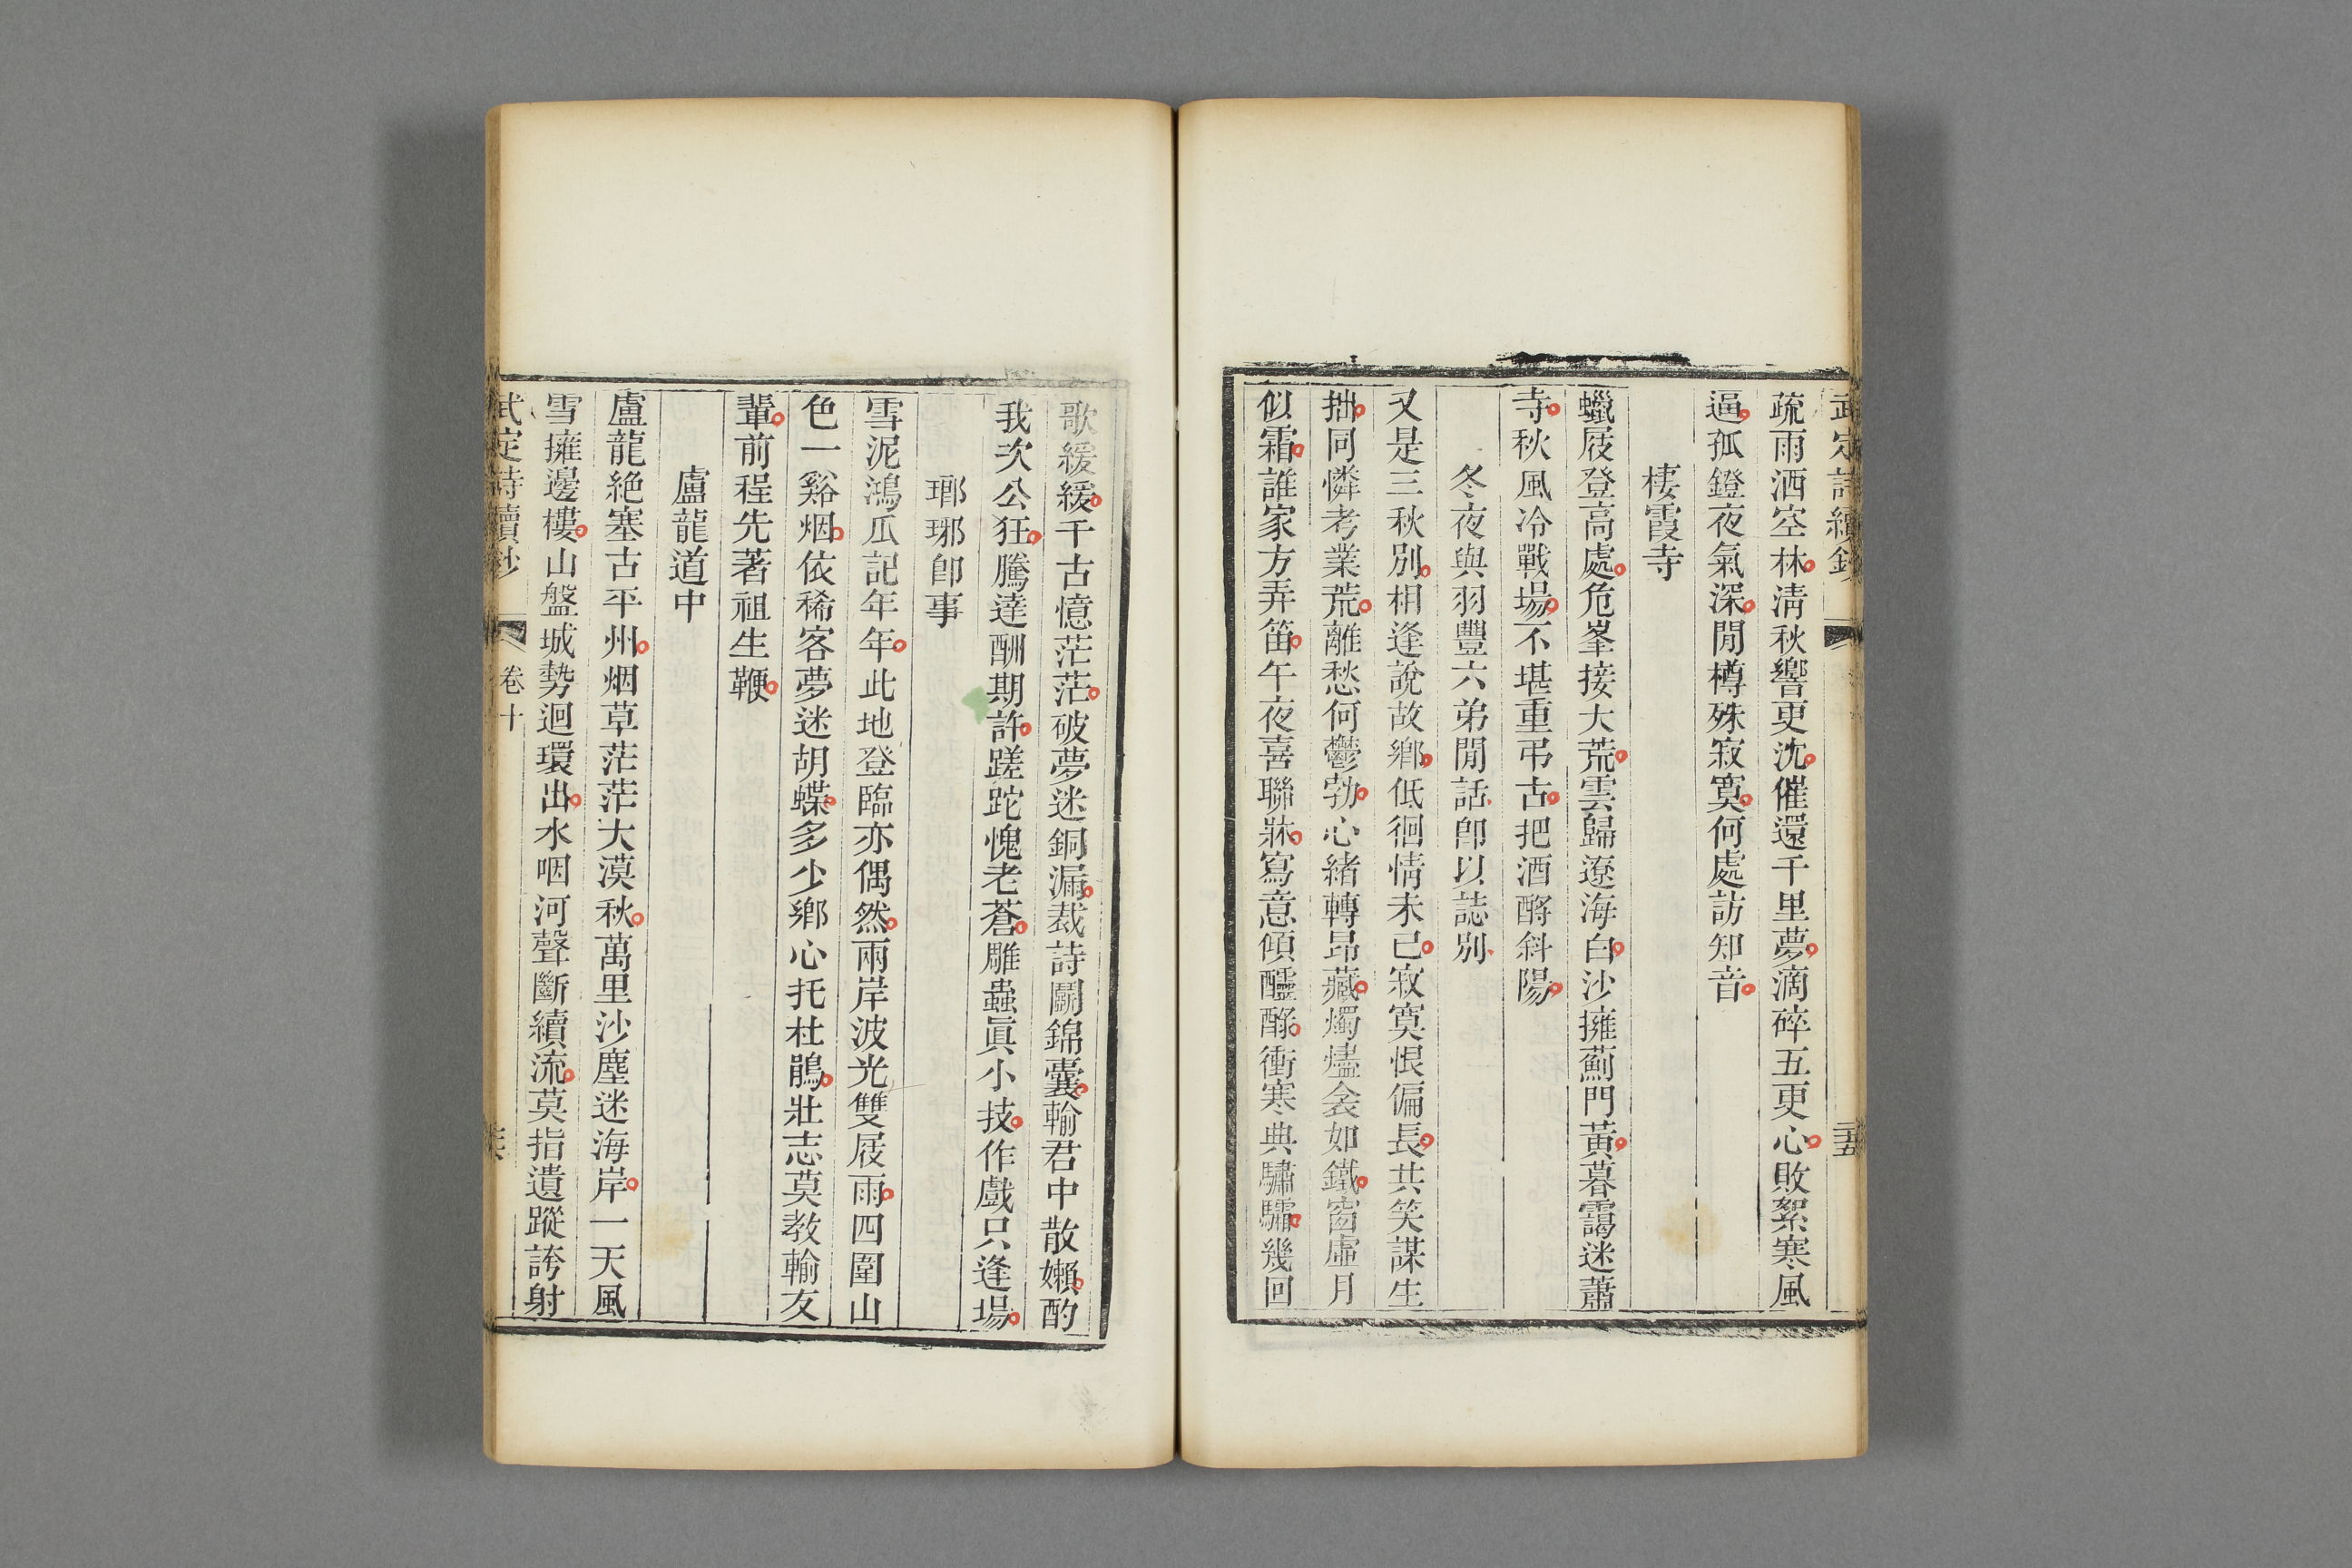 武定詩續鈔
二十五
疏雨洒空林淸秋響更沈催還千里夢滴碎五更心敗絮寒風
逼孤鐙夜氣深閒樽殊寂寞何處訪知音
棲霞寺
蠟屐登高處危峯接大荒雲歸遼海白沙擁薊門黃暮靄迷蕭
寺秋風冷戰場不堪重弔古把酒酹斜陽
冬夜與羽豐六弟閒話卽以誌別
又是三秋別相逢說故鄉低徊情未已寂寞恨偏長共笑謀生
拙同憐考業荒離愁何鬱勃心緒轉昂藏燭燼衾如鐵窗虛月
似霜誰家方弄笛午夜喜聯牀寫意傾醽醁衝寒典驌驦幾回
歌緩緩千古憶茫茫破夢迷銅漏裁詩鬭錦囊輸君中散嬾酌
我次公狂騰達酬期許蹉跎愧老蒼雕蟲眞小技作戲只逢場
瑯琊卽事
雪泥鴻瓜記年年此地登臨亦偶然兩岸波光雙屐雨四圍山
色一谿烟依稀客夢迷胡蝶多少鄉心托杜鵑壯志莫教輸友
輩前程先著祖生鞭
盧龍道中
盧龍絶塞古平州烟草茫茫大漠秋萬里沙塵迷海岸一天風
雪擁邊樓山盤城勢迴環出水咽河聲斷續流莫指遺蹤誇射
武定詩續鈔
卷十